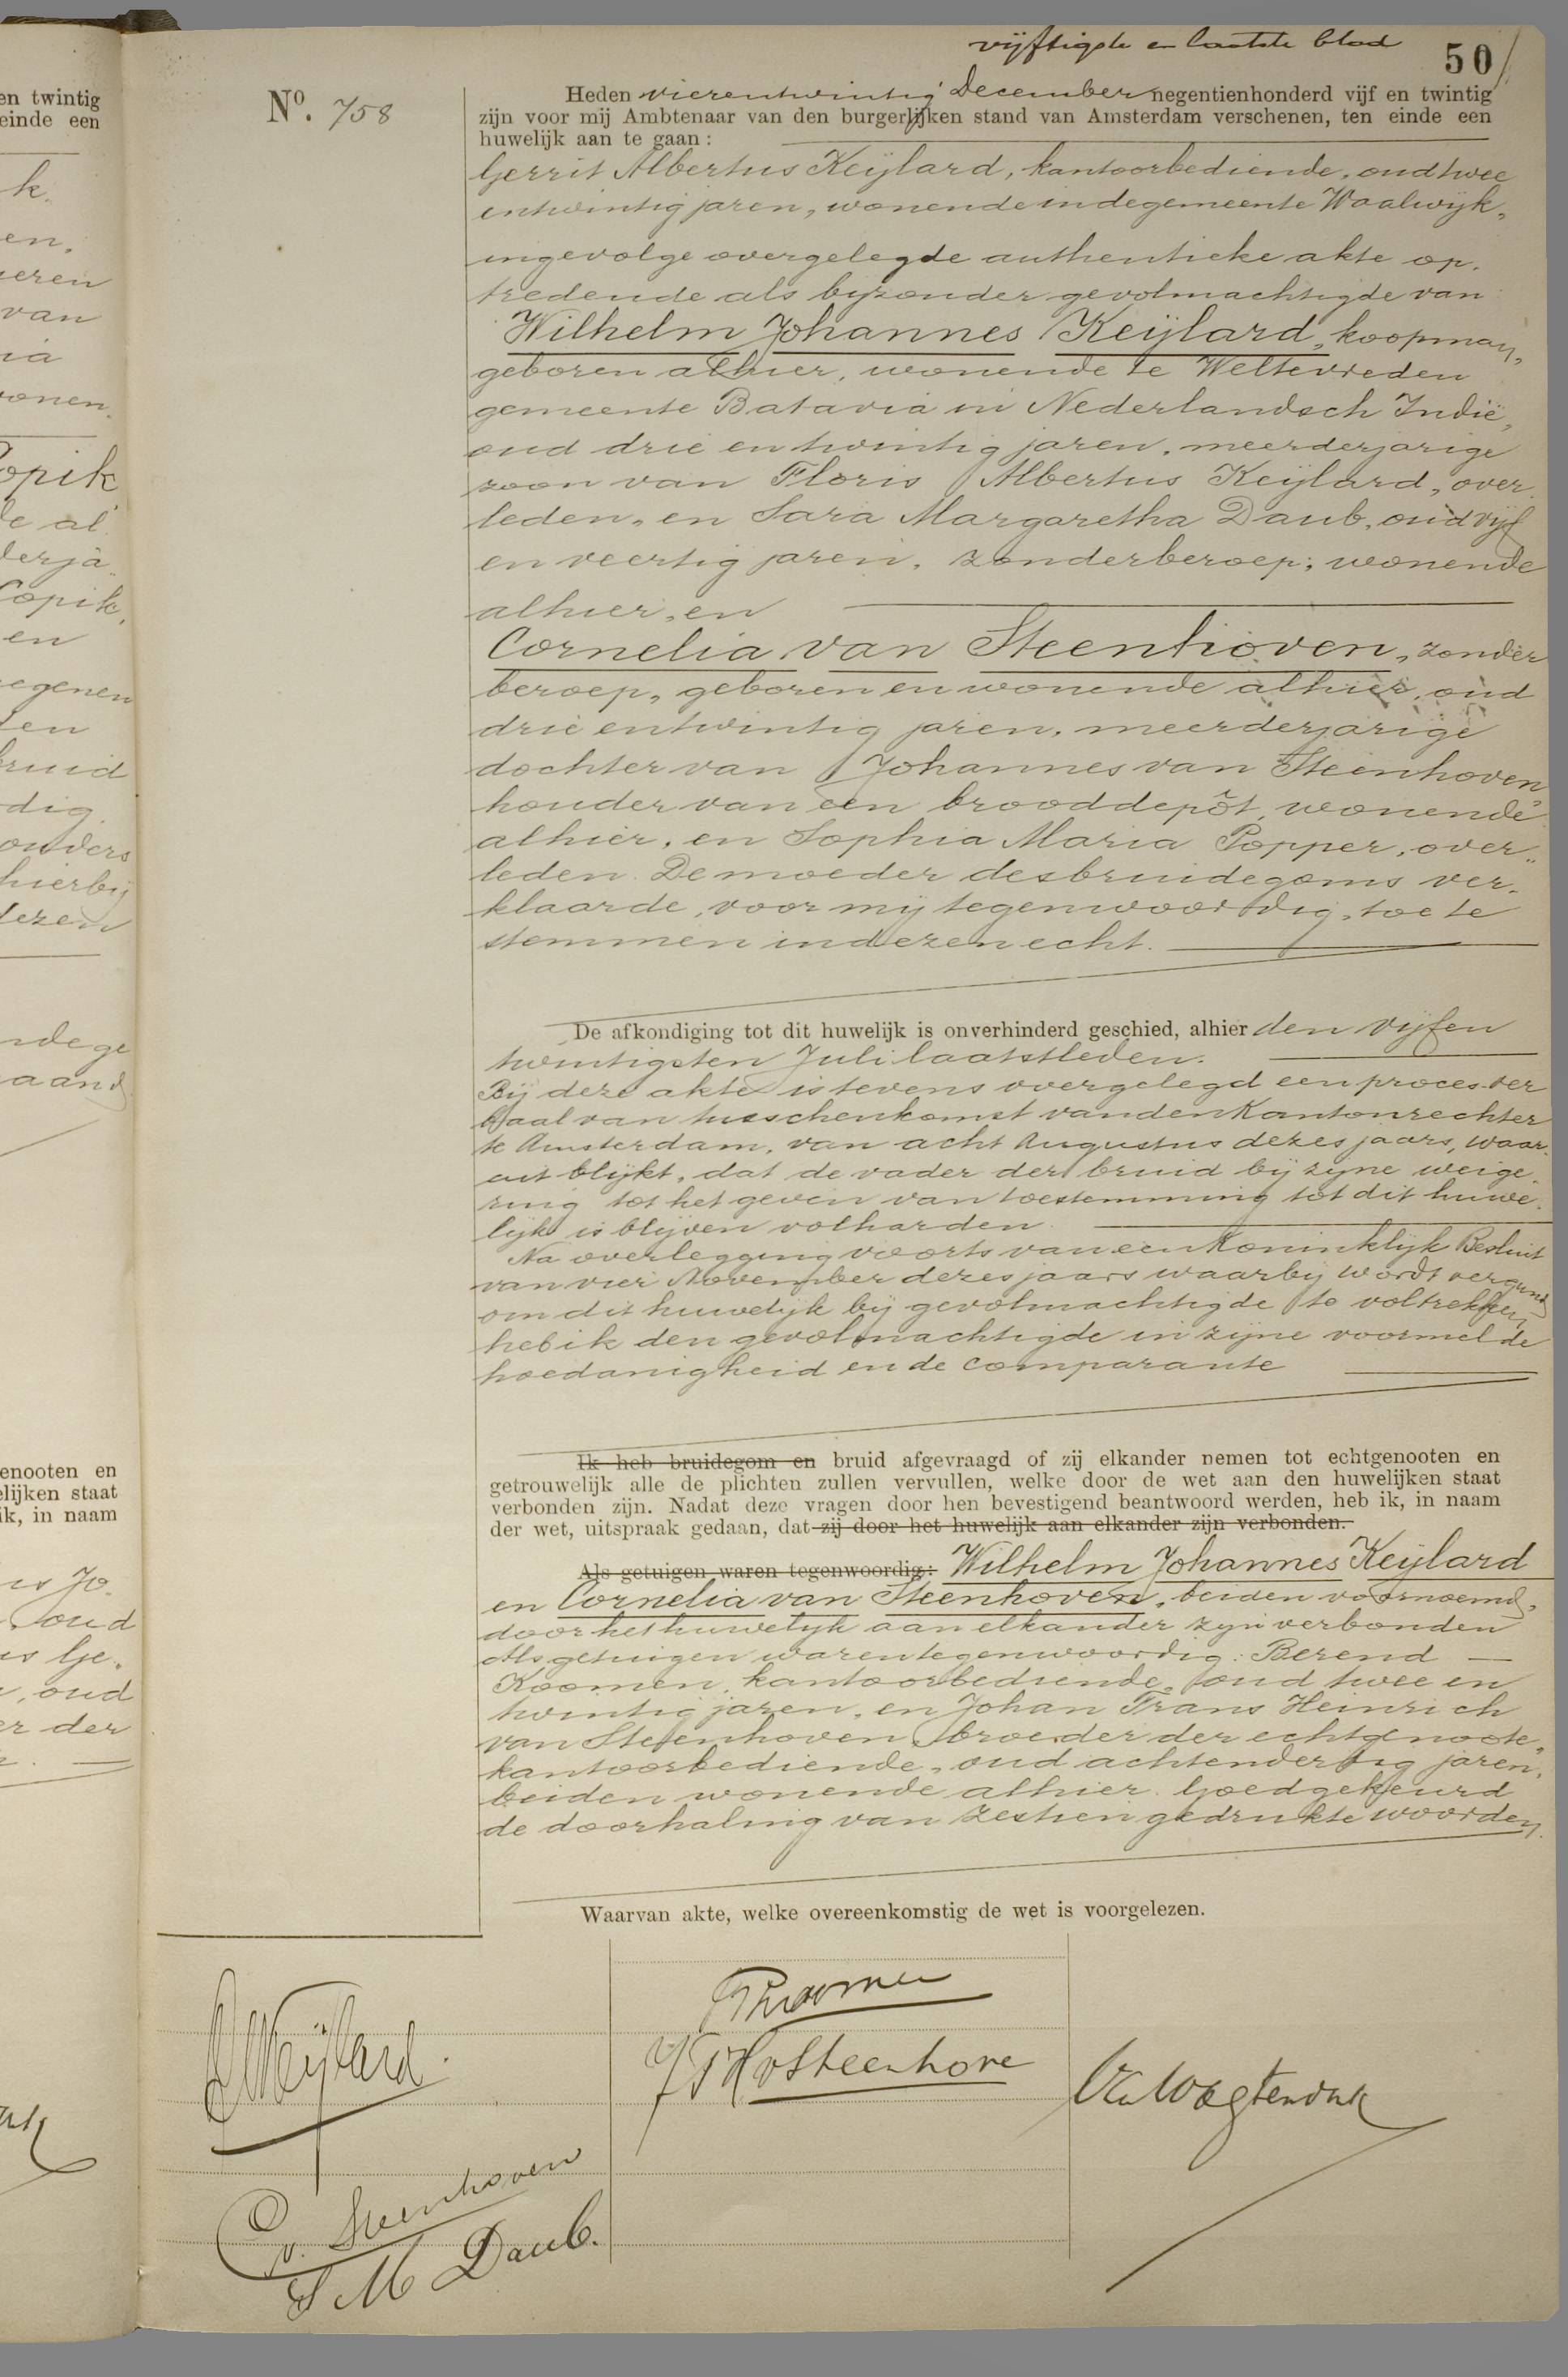 vijftigste en laatste blad
50
en twintig
einde een
k.
en.
ieren
van
ia
wonen.
Copik
de al
derja
Copik,
en
negenen
den
bruid
dig.
ouders
hierbij
dezen
ndege
aand
enooten en
elijken staat
ik, in naam
us Jo.
oud
us Ge.
, oud
er der
No. 758
Heden vierentwintig December negentienhonderd vijf en twintig
zijn voor mij Ambtenaar van den burgerlijken stand van Amsterdam verschenen, ten einde een
huwelijk aan te gaan:
Gerrit Albertus Keijlard, kantoorbediende, oud twee
entwintig jaren, wonende in de gemeente Waalwijk,
ingevolge overgelegde authentieke akte op-
tredende als bijzonder gevolmachtigde van
Wilhelm Johannes Keijlard, koopman,
geboren alhier, wonende te Weltevreden
gemeente Batavia in Nederlandsch Indië,
oud drie en twintig jaren, meerderjarige
zoon van Floris Albertus Keijlard, over
leden, en Sara Margaretha Daub, oud vijf
en veertig jaren, zonder beroep, wonende
alhier, en
Cornelia van Steenhoven, zonder
beroep, geboren en wonende alhier, oud
drie entwintig jaren, meerderjarige
dochter van Johannes van Steenhoven,
houder van een brooddepôt, wonende
alhier, en Sophia Maria Popper, over-
leden. De moeder des bruidegoms ver-
klaarde, voor mij tegenwoordig, toe te
stemmen in dezen echt.
De afkondiging tot dit huwelijk is onverhinderd geschied, alhier den vijfen
twintigsten Juli laatstleden.
Bij deze akte is tevens overgelegd een proces-ver
baal van tusschenkomst van den Kantonrechter
te Amsterdam, van acht Augustus dezes jaars, waar-
uit blijkt, dat de vader der bruid bij zijne weige-
ring tot het geven van toestemming tot dit huwe-
lijk is blijven volharden.
Na overlegging voorts van een Koninklijk Besluit
van vier November dezes jaars waarbij wordt vergund
om dit huwelijk bij gevolmachtigde te voltrekken,
heb ik den gevolmachtigde in zijne voormelde
hoedanigheid en de comparante
Ik heb bruidegom en bruid afgevraagd of zij elkander nemen tot echtgenooten en
getrouwelijk alle de plichten zullen vervullen, welke door de wet aan den huwelijken staat
verbonden zijn. Nadat deze vragen door hen bevestigend beantwoord werden, heb ik, in naam
der wet, uitspraak gedaan, dat zij door het huwelijk aan elkander zijn verbonden.
Als getuigen waren tegenwoordig: Wilhelm Johannes Keijlard
en Cornelia van Steenhoven, beiden voornoemd,
door het huwelijk aan elkander zijn verbonden
Als getuigen waren tegenwoordig: Berend
Koomen, kantoorbediende, oud twee en
twintig jaren, en Johan Frans Heinrich
van Steenhoven, broeder der echtgenoote,
kantoorbediende, oud achtendertig jaren,
beiden wonende alhier. Goedgekeurd
de doorhaling van zestien gedrukte woorden.
Waarvan akte, welke overeenkomstig de wet is voorgelezen.
Keijlard.
C v. Steenhoven
S M Daub.
BKoomen
JFHvSteenhove